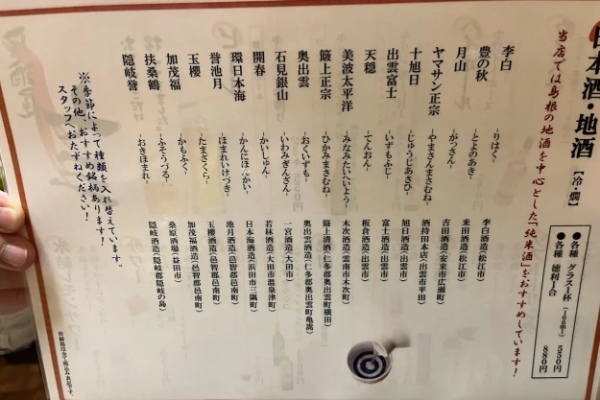 日本酒・地酒【冷・燗】
当店では島根の地酒を中心とした「純米酒」をおすすめしています!
●各種 グラス1杯 550円
●各種 徳利1合 880円
李白 ~りはく~ 李白酒造(松江市)
豊の秋 ~とよのあき~ 米田酒造(松江市)
月山 ~がっさん~ 吉田酒造(安来市広瀬町)
ヤマサン正宗 ~やまさんまさむね~ 酒持田本店(出雲市平田)
十旭日 ~じゅうじあさひ~ 旭日酒造(出雲市)
出雲富士 ~いずもふじ~ 富士酒造(出雲市)
天穏 ~てんおん~ 板倉酒造(出雲市)
美波太平洋 ~みなみたいへいよう~ 木次酒造(雲南市木次町)
簸上正宗 ~ひかみまさむね~ 簸上清酒(仁多郡奥出雲町横田)
奥出雲 ~おくいずも~ 奥出雲酒造(仁多郡奥出雲町亀嵩)
石見銀山 ~いわみぎんざん~ 一宮酒造(大田市)
開春 ~かいしゅん~ 若林酒造(大田市温泉津町)
環日本海 ~かんにほんかい~ 日本海酒造(浜田市三隅町)
誉池月 ~ほまれいけづき~ 池月酒造(邑智郡邑南町)
玉櫻 ~たまざくら~ 玉櫻酒造(邑智郡邑南町)
加茂福 ~かもふく~ 加茂福酒造(邑智郡邑南町)
扶桑鶴 ~ふそうづる~ 桑原酒場(益田市)
隠岐誉 ~おきほまれ~ 隠岐酒造(隠岐郡隠岐の島)
※季節によって種類を入れ替えています。
その他、おすすめ銘柄あります!
スタッフへおたずねください!